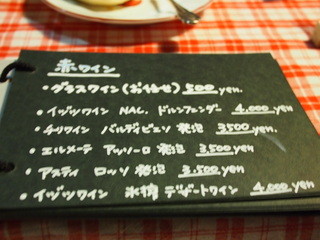 赤ワイン
・グラスワイン(お任せ) 500 yen.
・イヅツワイン NAC. ドルンフェンダー 4,000 yen
・チリワイン バルディビエソ 発泡 3500 yen.
・エルメーテ アッソーロ 発泡 3,500 yen
・アスティ ロッソ 発泡 3,500 yen
・イヅツワイン 氷搾 デザートワイン 4,000 yen